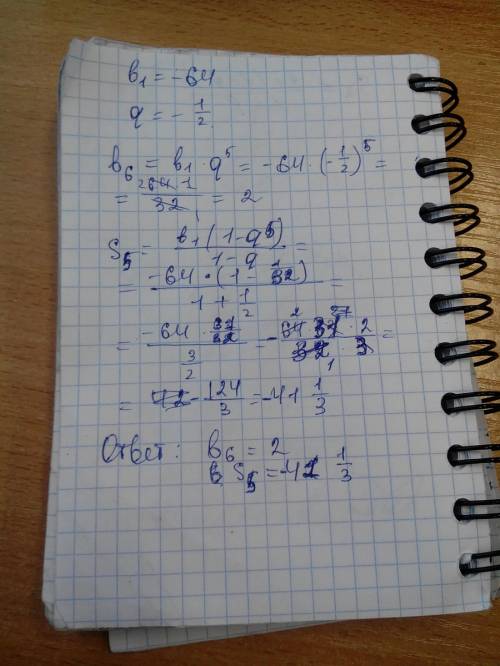 b₁ = -64
q = - 1/2
b₆ = b₁ · q⁵ = -64 · (-1/2)⁵ =
= 64·1/32 = 2
S₅ = b₁(1-q⁵)/1-q =
= -64·(1-1/32)/1+1/2 =
= -64·31/32 / 3/2 = -64·31·2/32·3 =
= -124/3 = -41 1/3
Ответ: b₆ = 2
S₅ = -41 1/3